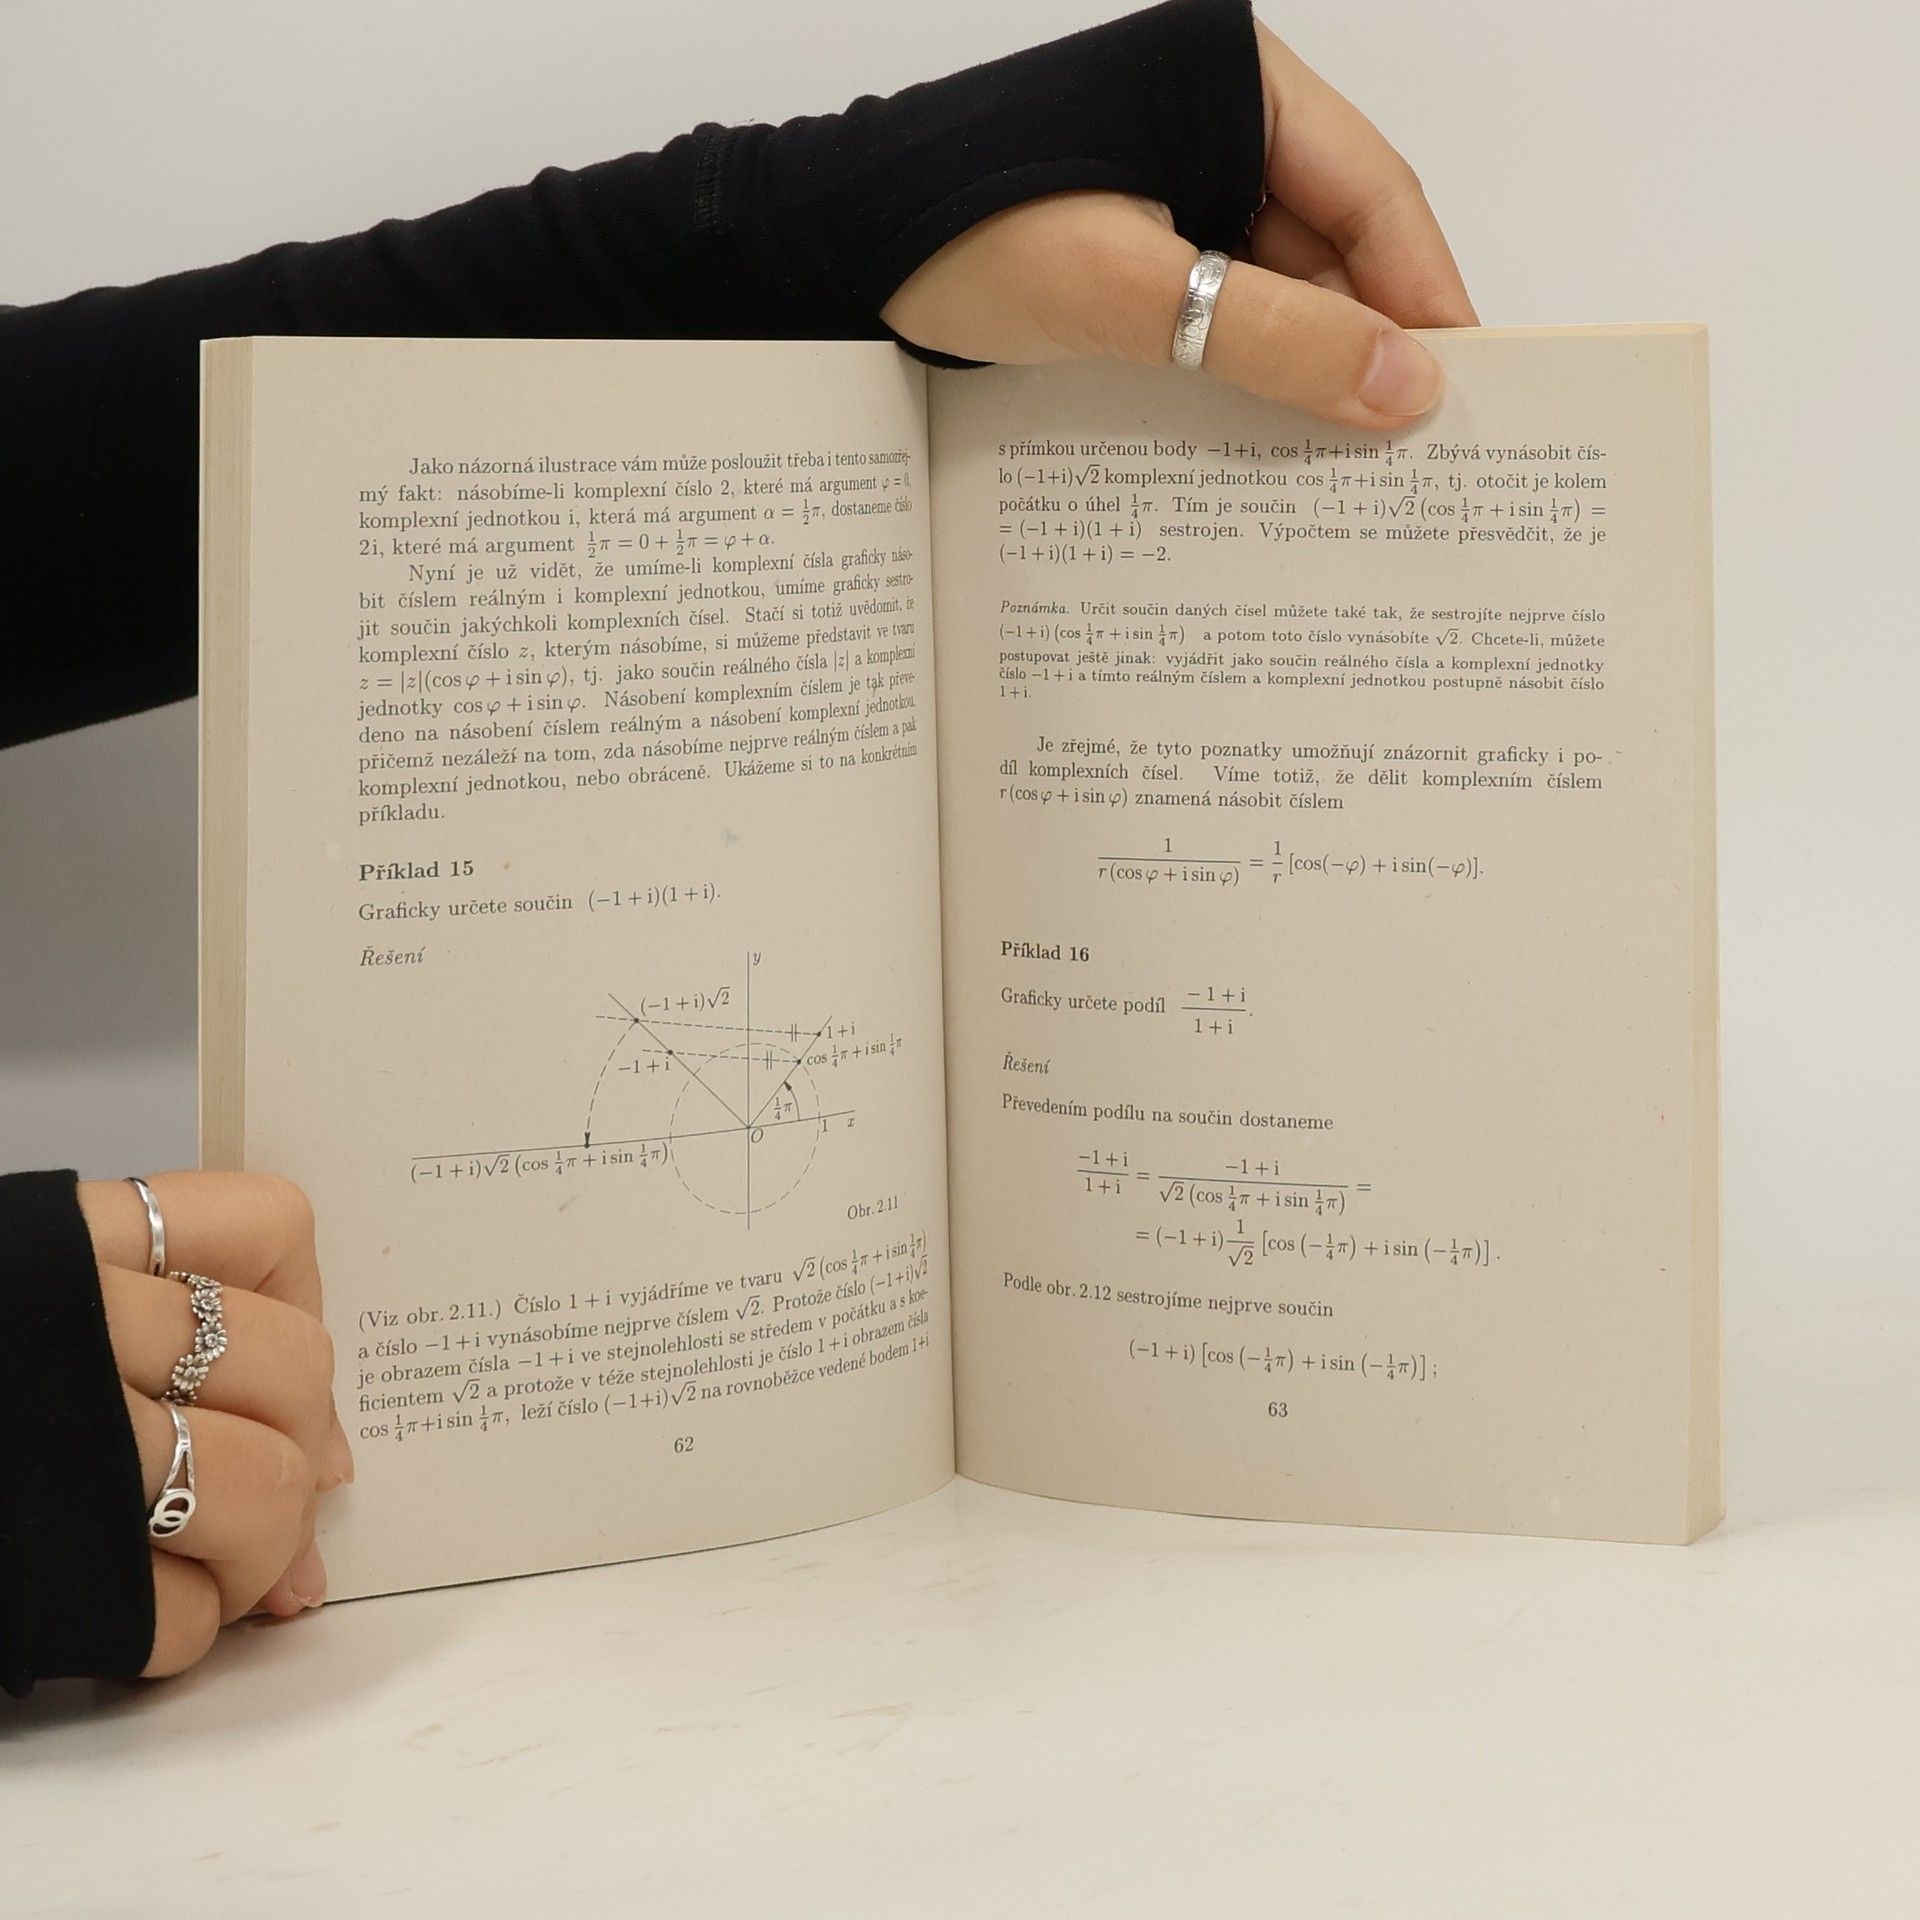 Jako názorná ilustrace vám může posloužit třeba i tento samozřej-
mý fakt: násobíme-li komplexní číslo 2, které má argument φ = 0,
komplexní jednotkou i, která má argument α = ½π, dostaneme číslo
2i, které má argument ½π = 0 + ½π = φ + α.
Nyní je už vidět, že umíme-li komplexní čísla graficky náso-
bit číslem reálným i komplexní jednotkou, umíme graficky sestro-
jit součin jakýchkoli komplexních čísel. Stačí si totiž uvědomit, že
komplexní číslo z, kterým násobíme, si můžeme představit ve tvaru
z = |z|(cos φ + i sin φ), tj. jako součin reálného čísla |z| a komplexní
jednotky cos φ + i sin φ. Násobení komplexním číslem je tak převe-
deno na násobení číslem reálným a násobení komplexní jednotkou,
přičemž nezáleží na tom, zda násobíme nejprve reálným číslem a pak
komplexní jednotkou, nebo obráceně. Ukážeme si to na konkrétním
příkladu.
Příklad 15
Graficky určete součin (−1 + i)(1 + i).
Řešení
y
(−1 + i)√2
1 + i
−1 + i
cos ¼π + i sin ¼π
¼π
O
1
x
(−1 + i)√2 (cos ¼π + i sin ¼π)
Obr. 2.11
(Viz obr. 2.11.) Číslo 1 + i vyjádříme ve tvaru √2 (cos ¼π + i sin ¼π)
a číslo −1 + i vynásobíme nejprve číslem √2. Protože číslo (−1+i)√2
je obrazem čísla −1 + i ve stejnolehlosti se středem v počátku a s koe-
ficientem √2 a protože v téže stejnolehlosti je číslo 1 + i obrazem čísla
cos ¼π+i sin ¼π, leží číslo (−1+i)√2 na rovnoběžce vedené bodem 1+i
62
s přímkou určenou body −1+i, cos ¼π+i sin ¼π. Zbývá vynásobit čís-
lo (−1+i)√2 komplexní jednotkou cos ¼π+i sin ¼π, tj. otočit je kolem
počátku o úhel ¼π. Tím je součin (−1 + i)√2 (cos ¼π + i sin ¼π) =
= (−1 + i)(1 + i) sestrojen. Výpočtem se můžete přesvědčit, že je
(−1+i)(1+i) = −2.
Poznámka. Určit součin daných čísel můžete také tak, že sestrojíte nejprve číslo
(−1+i) (cos ¼π + i sin ¼π) a potom toto číslo vynásobíte √2. Chcete-li, můžete
postupovat ještě jinak: vyjádřit jako součin reálného čísla a komplexní jednotky
číslo −1 + i a tímto reálným číslem a komplexní jednotkou postupně násobit číslo
1 + i.
Je zřejmé, že tyto poznatky umožňují znázornit graficky i po-
díl komplexních čísel. Víme totiž, že dělit komplexním číslem
r (cos φ + i sin φ) znamená násobit číslem
1/(r (cos φ + i sin φ)) = 1/r [cos(−φ) + i sin(−φ)].
Příklad 16
Graficky určete podíl (−1 + i)/(1 + i).
Řešení
Převedením podílu na součin dostaneme
(−1 + i)/(1 + i) = (−1 + i)/(√2 (cos ¼π + i sin ¼π)) =
= (−1 + i) 1/√2 [cos (−¼π) + i sin (−¼π)] .
Podle obr. 2.12 sestrojíme nejprve součin
(−1 + i) [cos (−¼π) + i sin (−¼π)] ;
63